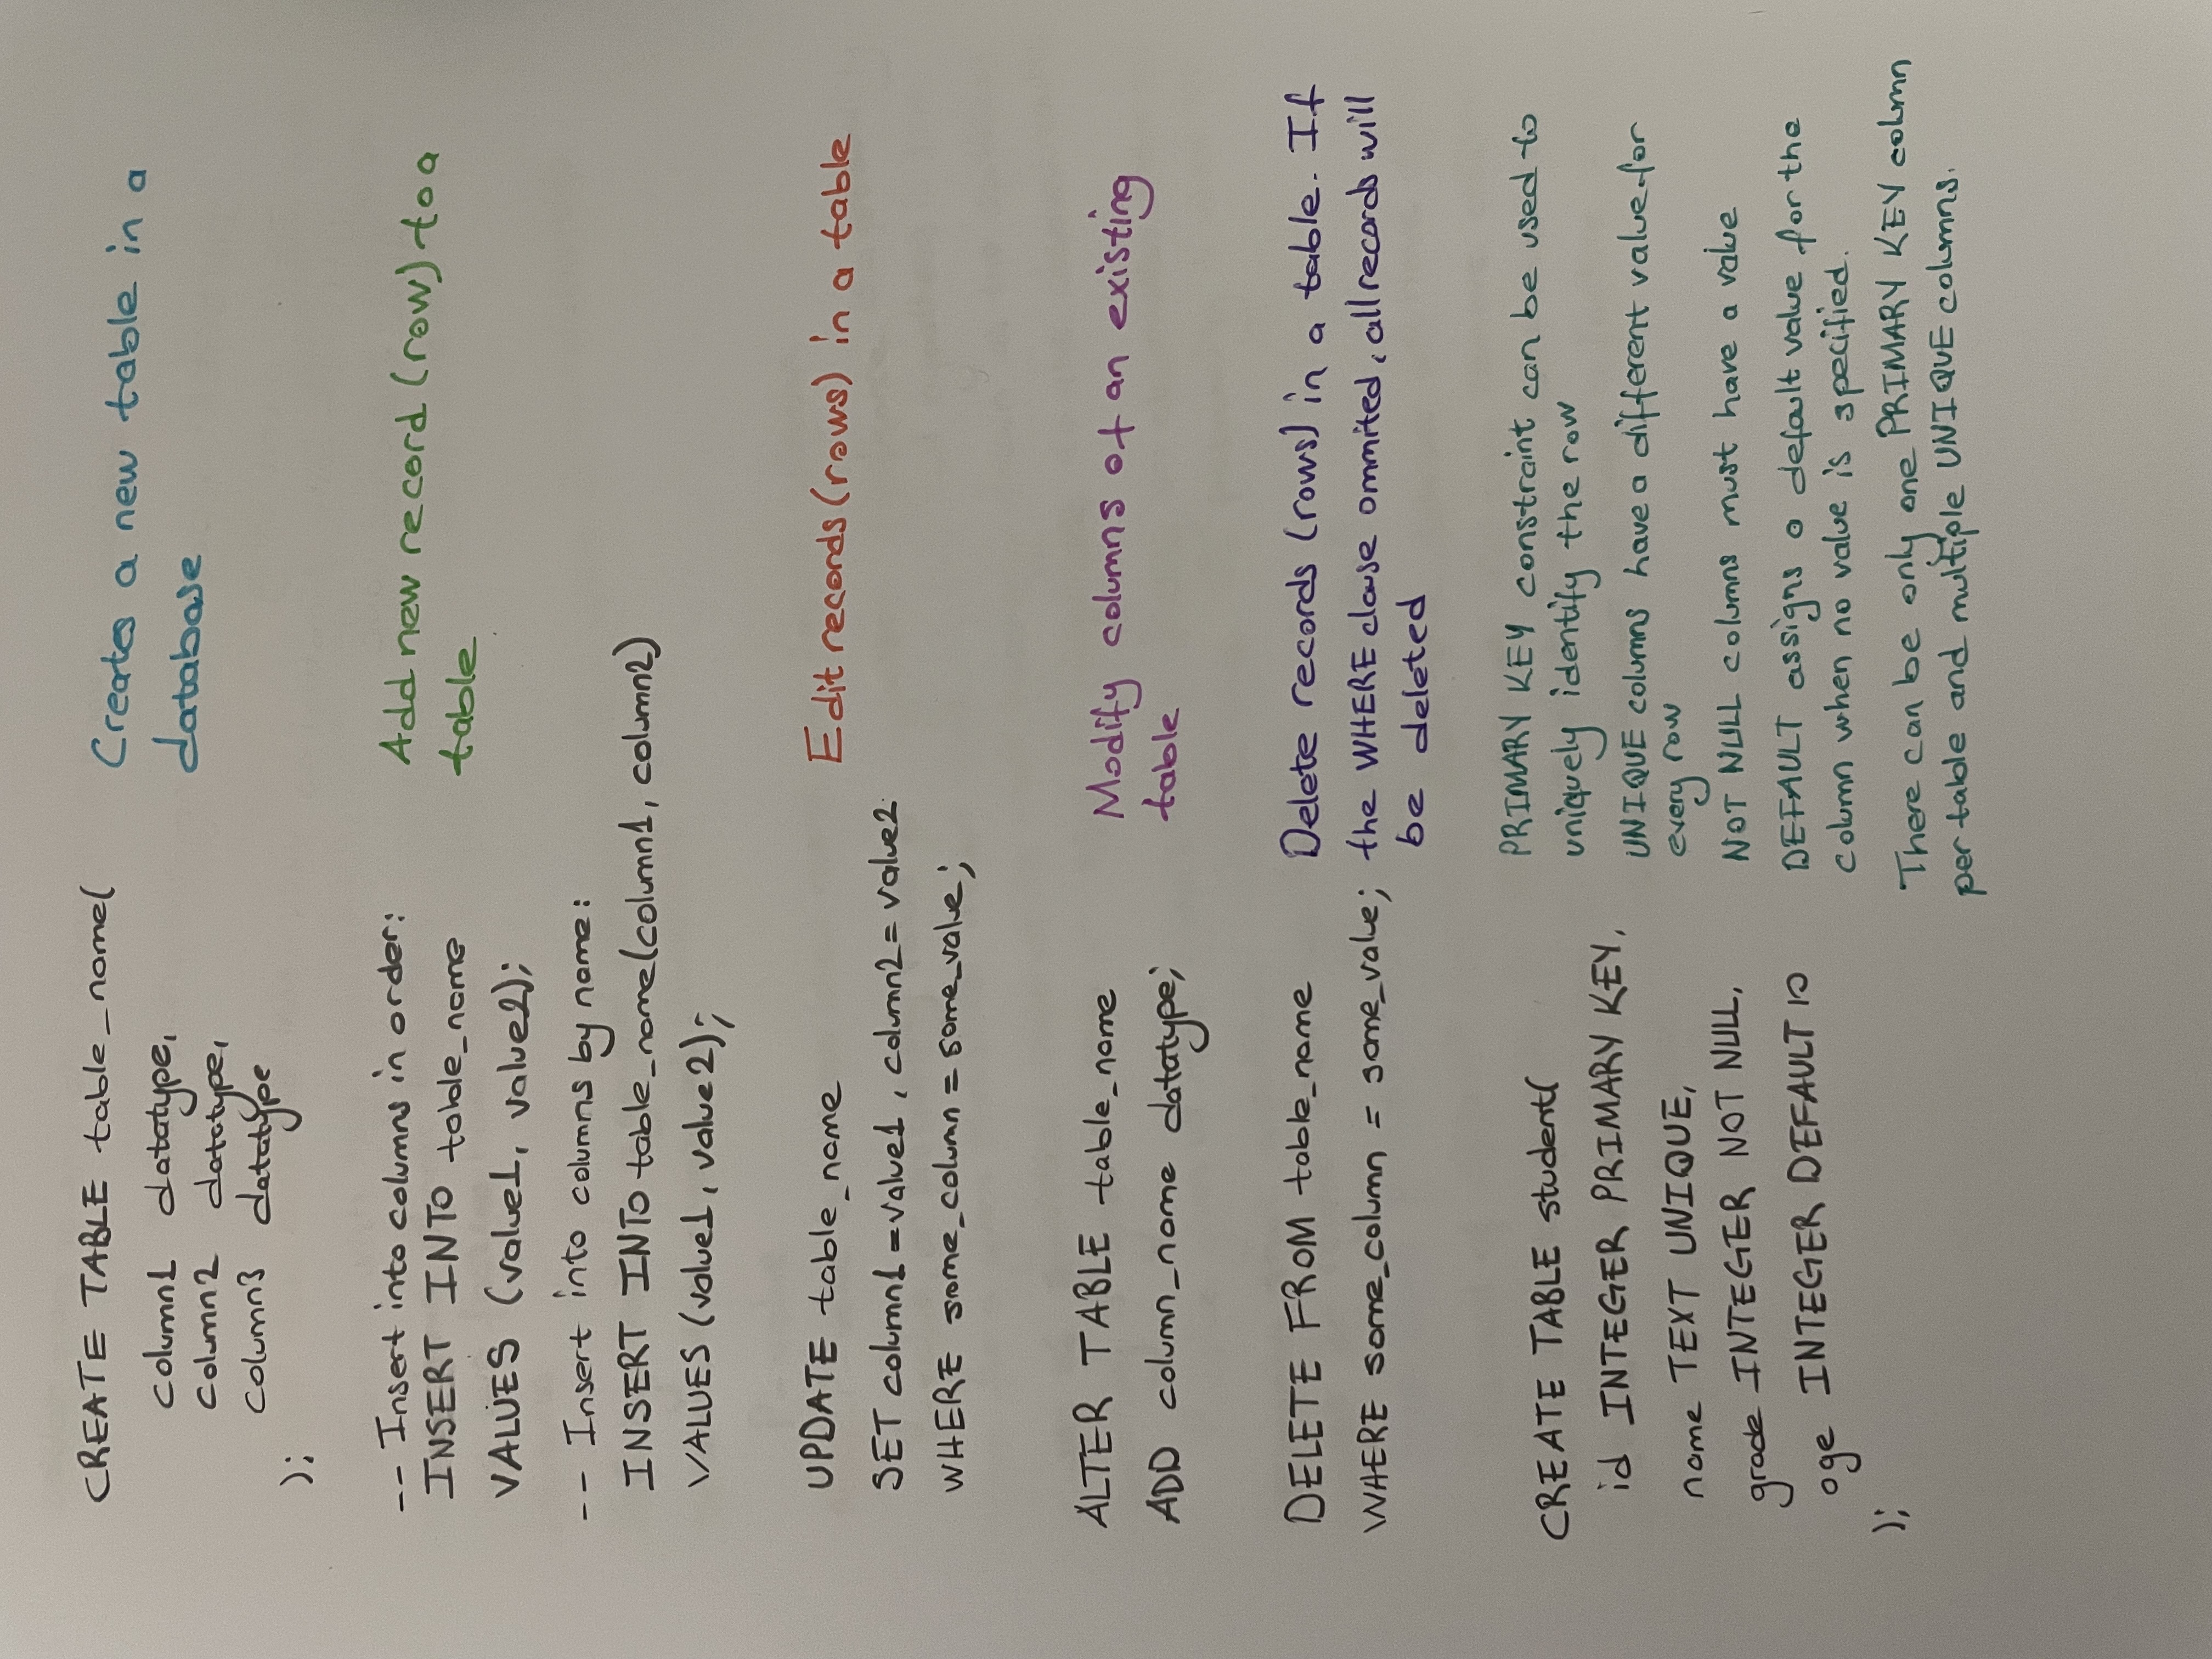 CREATE TABLE table_name(
column1 datatype,
column2 datatype,
column3 datatype
);
Creates a new table in a
database
-- Insert into columns in order:
INSERT INTO table_name
VALUES (value1, value2);
-- Insert into columns by name:
INSERT INTO table_name(column1, column2)
VALUES (value1, value2);
Add new record (row) to a
table
UPDATE table_name
SET column1 = value1, column2 = value2
WHERE some_column = some_value;
Edit records (rows) in a table
ALTER TABLE table_name
ADD column_name datatype;
Modify columns of an existing
table
DELETE FROM table_name
WHERE some_column = some_value;
Delete records (rows) in a table. If
the WHERE clause ommited, all records will
be deleted
CREATE TABLE student(
id INTEGER PRIMARY KEY,
name TEXT UNIQUE,
grade INTEGER NOT NULL,
age INTEGER DEFAULT 10
);
PRIMARY KEY constraint can be used to
uniquely identify the row
UNIQUE columns have a different value for
every row
NOT NULL columns must have a value
DEFAULT assigns a default value for the
column when no value is specified.
There can be only one PRIMARY KEY column
per table and multiple UNIQUE columns.